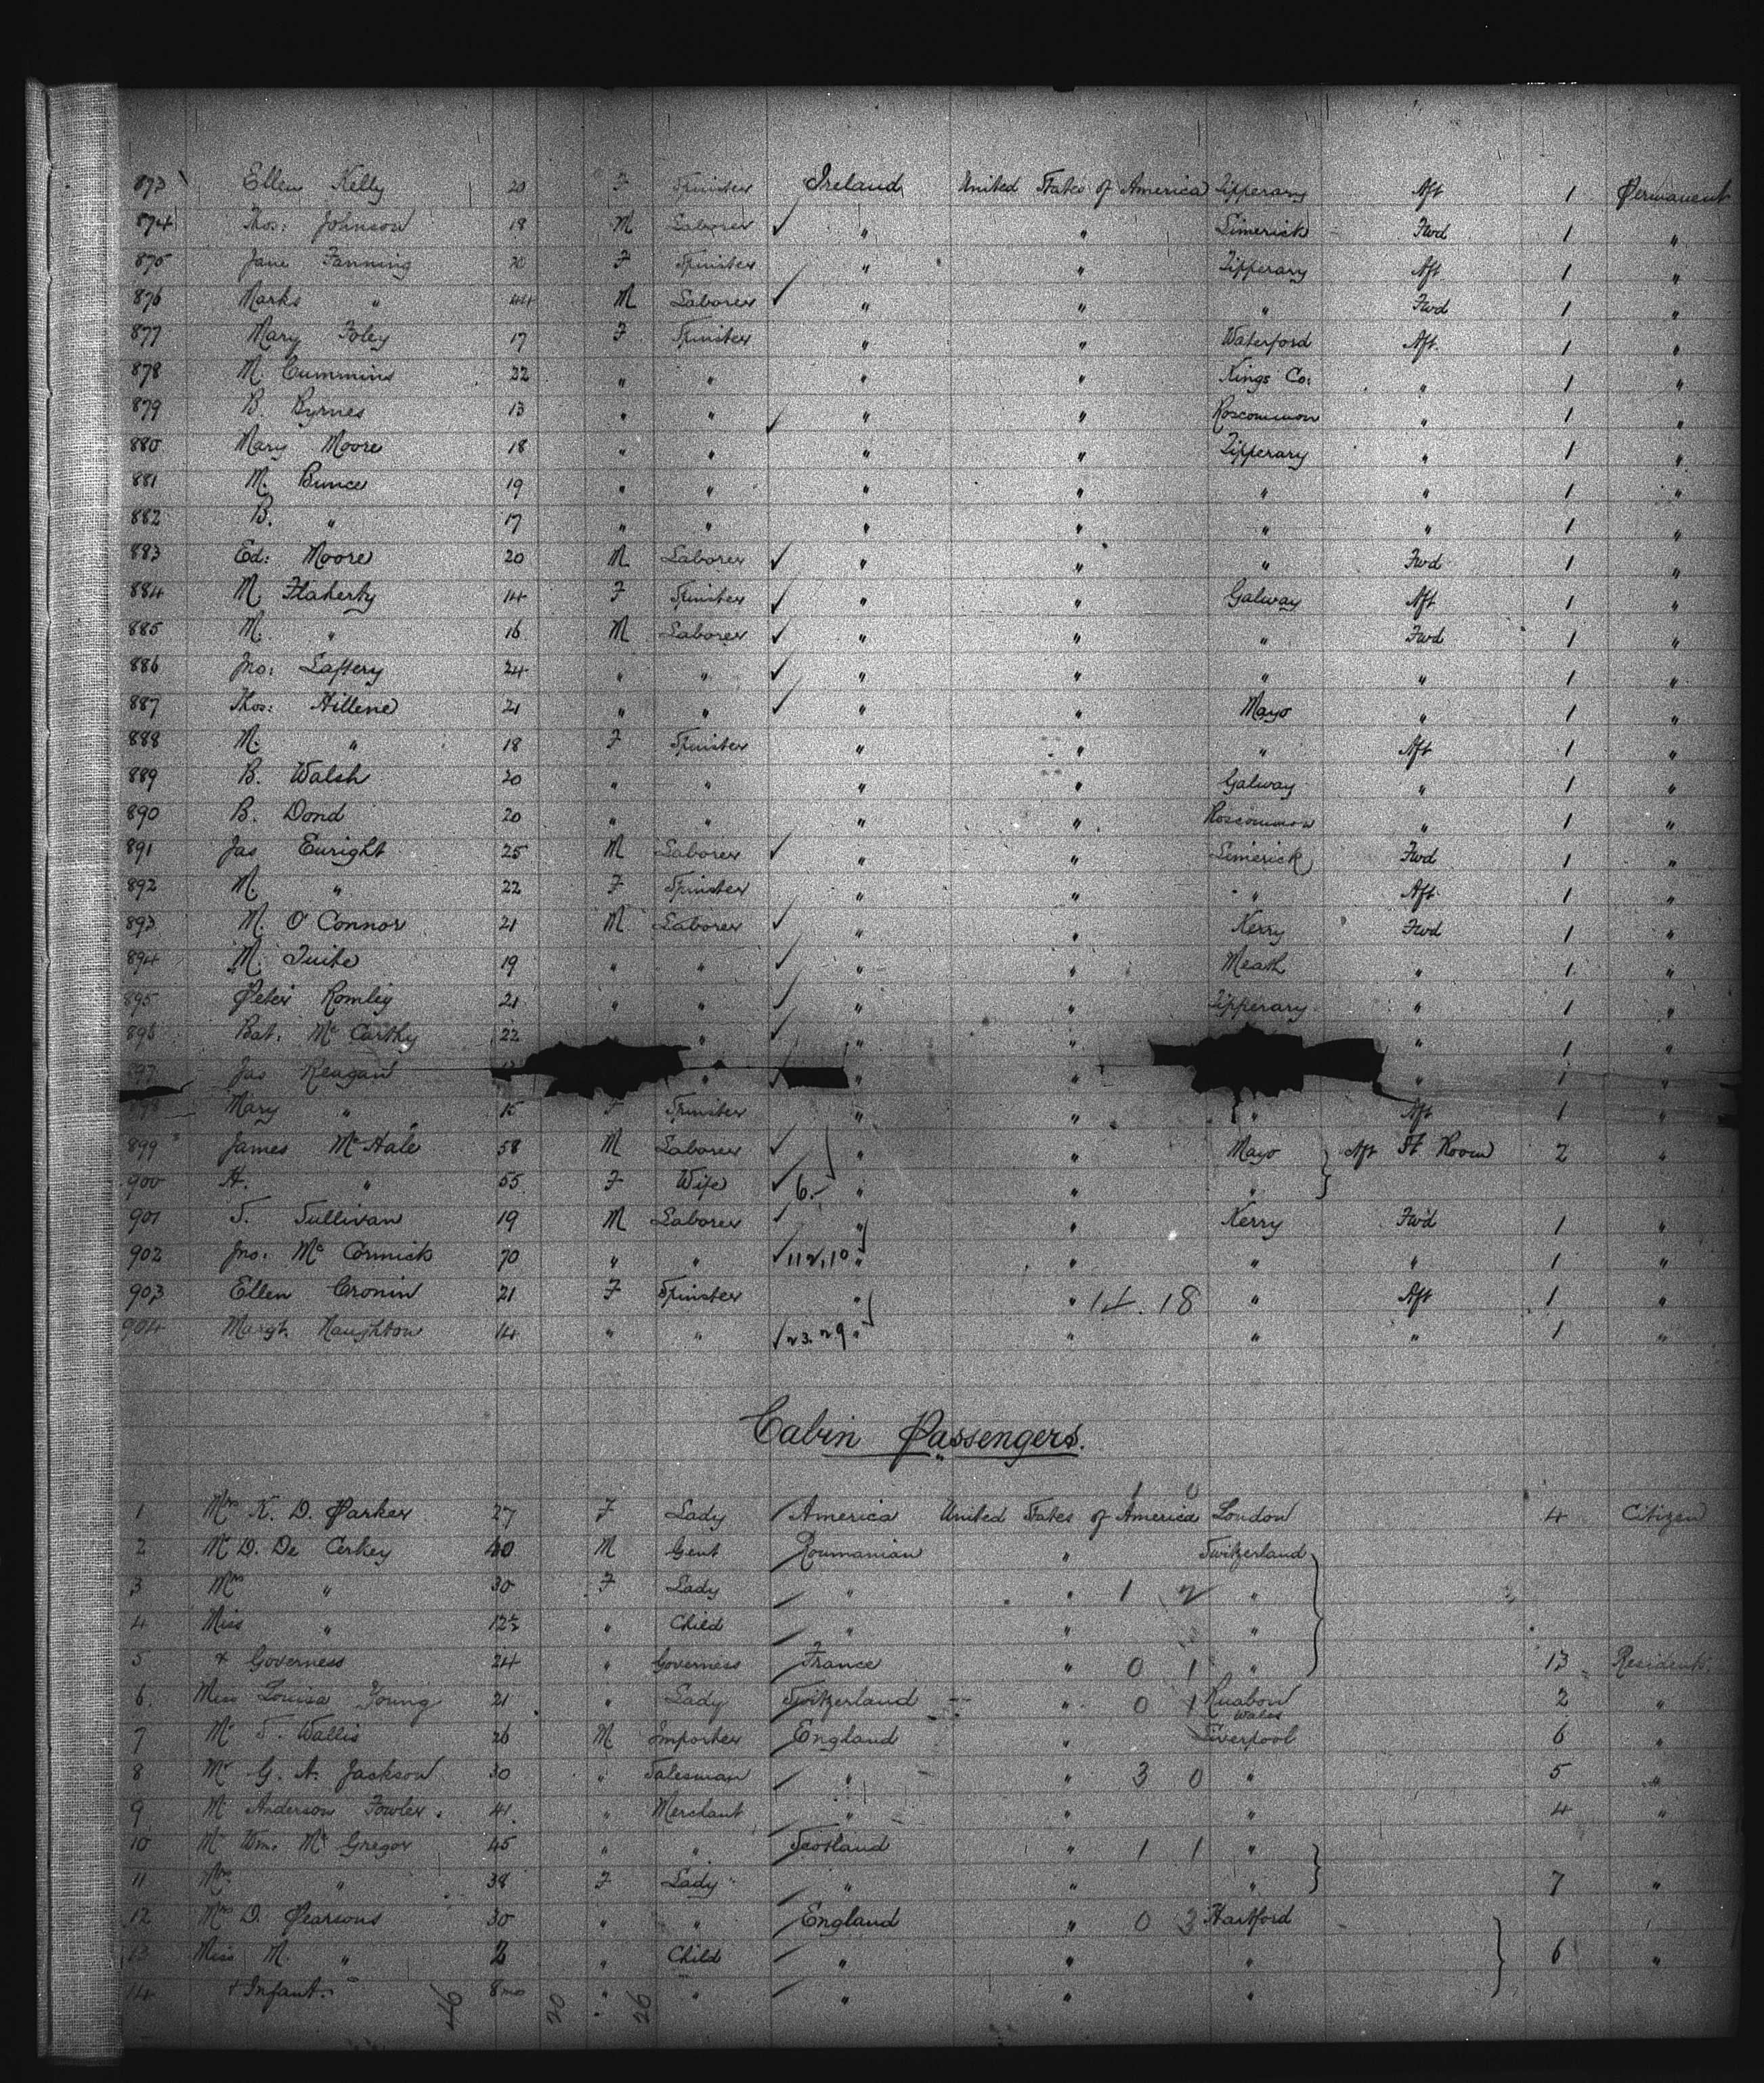 873 Ellen Kelly 20 F Spinster Ireland United States of America Tipperary Aft 1 Permanent
874 Thos: Johnson 18 M Laborer ✓ " " Limerick Fwd 1 "
875 Jane Fanning 20 F Spinster " " Tipperary Aft 1 "
876 Marks " 44 M Laborer ✓ " " " Fwd 1 "
877 Mary Foley 17 F Spinster " " Waterford Aft 1 "
878 M. Cummins 22 " " " " Kings Co: " 1 "
879 B. Byrnes 13 " " ✓ " " Roscommon " 1 "
880 Mary Moore 18 " " " " Tipperary " 1 "
881 M. Bunce 19 " " " " " " 1 "
882 B. " 17 " " " " " " 1 "
883 Ed: Moore 20 M Laborer ✓ " " " Fwd 1 "
884 M. Flaherty 14 F Spinster ✓ " " Galway Aft 1 "
885 M. " 16 M Laborer ✓ " " " Fwd 1 "
886 Jno: Laftery 24 " " ✓ " " " " 1 "
887 Thos: Hillene 21 " " ✓ " " Mayo " 1 "
888 M. " 18 F Spinster " " " Aft 1 "
889 B. Walsh 20 " " " " Galway " 1 "
890 B. Dond 20 " " " " Roscommon " 1 "
891 Jas Enright 25 M Laborer ✓ " " Limerick Fwd 1 "
892 M. " 22 F Spinster " " " Aft 1 "
893 M. O'Connor 21 M Laborer ✓ " " Kerry Fwd 1 "
894 M. Tuite 19 " " ✓ " " Meath " 1 "
895 Peter Romley 21 " " ✓ " " Tipperary " 1 "
896 Bat: McCarthy 22 " ✓ " " " 1 "
897 Jas Reagan " ✓ " " " 1 "
898 Mary " 15 F Spinster " " " Aft 1 "
899 James McHale 58 M Laborer ✓ " " Mayo Aft St Room 2 "
900 H. " 55 F Wife ✓ 6.- " " "
901 T. Sullivan 19 M Laborer ✓ " " Kerry Fwd 1 "
902 Jno: McCormick 70 " " ✓ 112,10 " " " " 1 "
903 Ellen Cronin 21 F Spinster " " 14.18 " Aft 1 "
904 Margt Naughton 14 " " ✓ 23.29 " " " " 1 "
Cabin Passengers.
1 Mrs K. D. Parker 27 F Lady America United States of America London 4 Citizen
2 Mr D. De Cerkey 40 M Gent Roumanian " Switzerland
3 Mrs " 30 F Lady " " 1 2 "
4 Miss " 12½ " Child " " "
5 & Governess 24 " Governess France " 0 1 " 13 Residents
6 Miss Louisa Young 21 " Lady Switzerland " 0 1 Ruabon Wales 2 "
7 Mr T. Wallis 26 M Importer England " Liverpool 6 "
8 Mr G. A. Jackson 30 " Salesman " " 3 0 " 5 "
9 Mr Anderson Fowler 41 " Merchant " " " 4 "
10 Mr Wm. McGregor 45 " " Scotland " 1 1 "
11 Mrs " 38 F Lady " " " 7 "
12 Mrs D. Pearsons 30 " " England " 0 3 Hartford
13 Miss M. " 2 " Child " " " 6 "
14 & Infant. 8 mo " " " " "
46 20 26